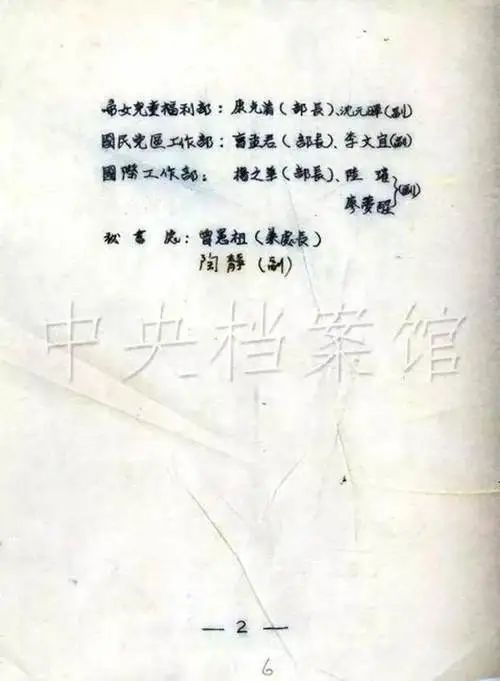 婦女兒童福利部：康克清（部長）、沈元暉（副）
國民党區工作部：曹孟君（部長）、李文宜（副）
國際工作部：楊之華（部長）、陸璀
廖夢醒（副）
秘書處：曾憲植（兼處長）
陶靜（副）
中央档案馆
— 2 —
6